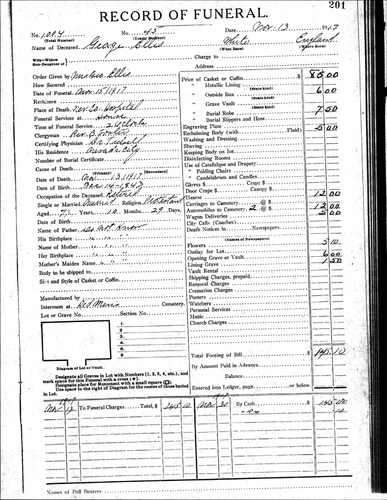 201
RECORD OF FUNERAL.
No. 1007 No. 45 Date Nov. 13 1917
(Total Number) (Yearly Number)
Name of Deceased George Ellis White England
(What Race) (Where Born)
Wife—Widow
Son—Daughter of
Charge to
Address
Order Given by Mrs Geo. Ellis
How Secured
Date of Funeral Nov. 15 1917
Residence
Place of Death Hospital
Funeral Services at House
Time of Funeral Service 2 o'clock
Clergyman Rev. B.
Certifying Physician Dr.
His Residence
Number of Burial Certificate
Cause of Death
(Primary) (Secondary)
Date of Death 13, 1917
Date of Birth Dec 14-1843
Occupation of the Deceased Retired
Single or Married Married Religion
Aged 73 Years, 10 Months, 29 Days.
Name of Father
His Birthplace
Name of Mother
Her Birthplace
Mother's Maiden Name
Body to be shipped to
Size and Style of Casket or Coffin
Manufactured by
Interment at Cemetery.
Lot or Grave No. Section No.
1
2
3
4
5
6
Diagram of Lot or Vault.
Designate all Graves in Lot with Numbers (1, 2, 3, 4, etc.), and
mark space for this Funeral with a cross (+)
Designate place for Monument with a small square (□).
Use space to the right of Diagram for the names of those buried
in Lot.
Price of Casket or Coffin $ 85.00
" Metallic Lining
(State Kind)
" Outside Box 6.00
(State kind)
" Grave Vault
(State kind)
" Burial Robe 7.50
(State kind)
" Burial Slippers and Hose
Engraving Plate
Embalming Body (with Fluid) 5.00
Washing and Dressing
Shaving
Keeping Body on Ice
Disinfecting Rooms
Use of Catafalque and Drapery
" Folding Chairs
" Candelabrum and Candles
Gloves $ Crape $
Door Crape $ Canopy $
Hearse 12.00
Carriages to Cemetery @ $ 12.00
Automobiles to Cemetery 2 @ $ 5.00
Wagon Deliveries
City Calls (Coaches)
Death Notices in Newspapers
(Names of Newspapers)
Flowers 5.10
Outlay for Lot
Opening Grave or Vault 6.00
Lining Grave 1.50
Vault Rental
Shipping Charges, prepaid
Removal Charges
Cremation Charges
Porters
Watchers
Personal Services
Music
Church Charges
Total Footing of Bill $ 145.10
By Amount Paid in Advance
Balance
Entered into Ledger, page or below.
1917
Nov 13 To Funeral Charges Total, $ 145 10 Nov 20 By Cash $ 145 00
10
Names of Pall Bearers